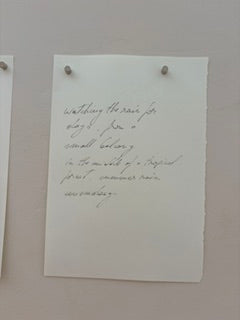 watching the rain for
days. from a
small balcony
in the middle of a tropical
forest. summer rain
unending.